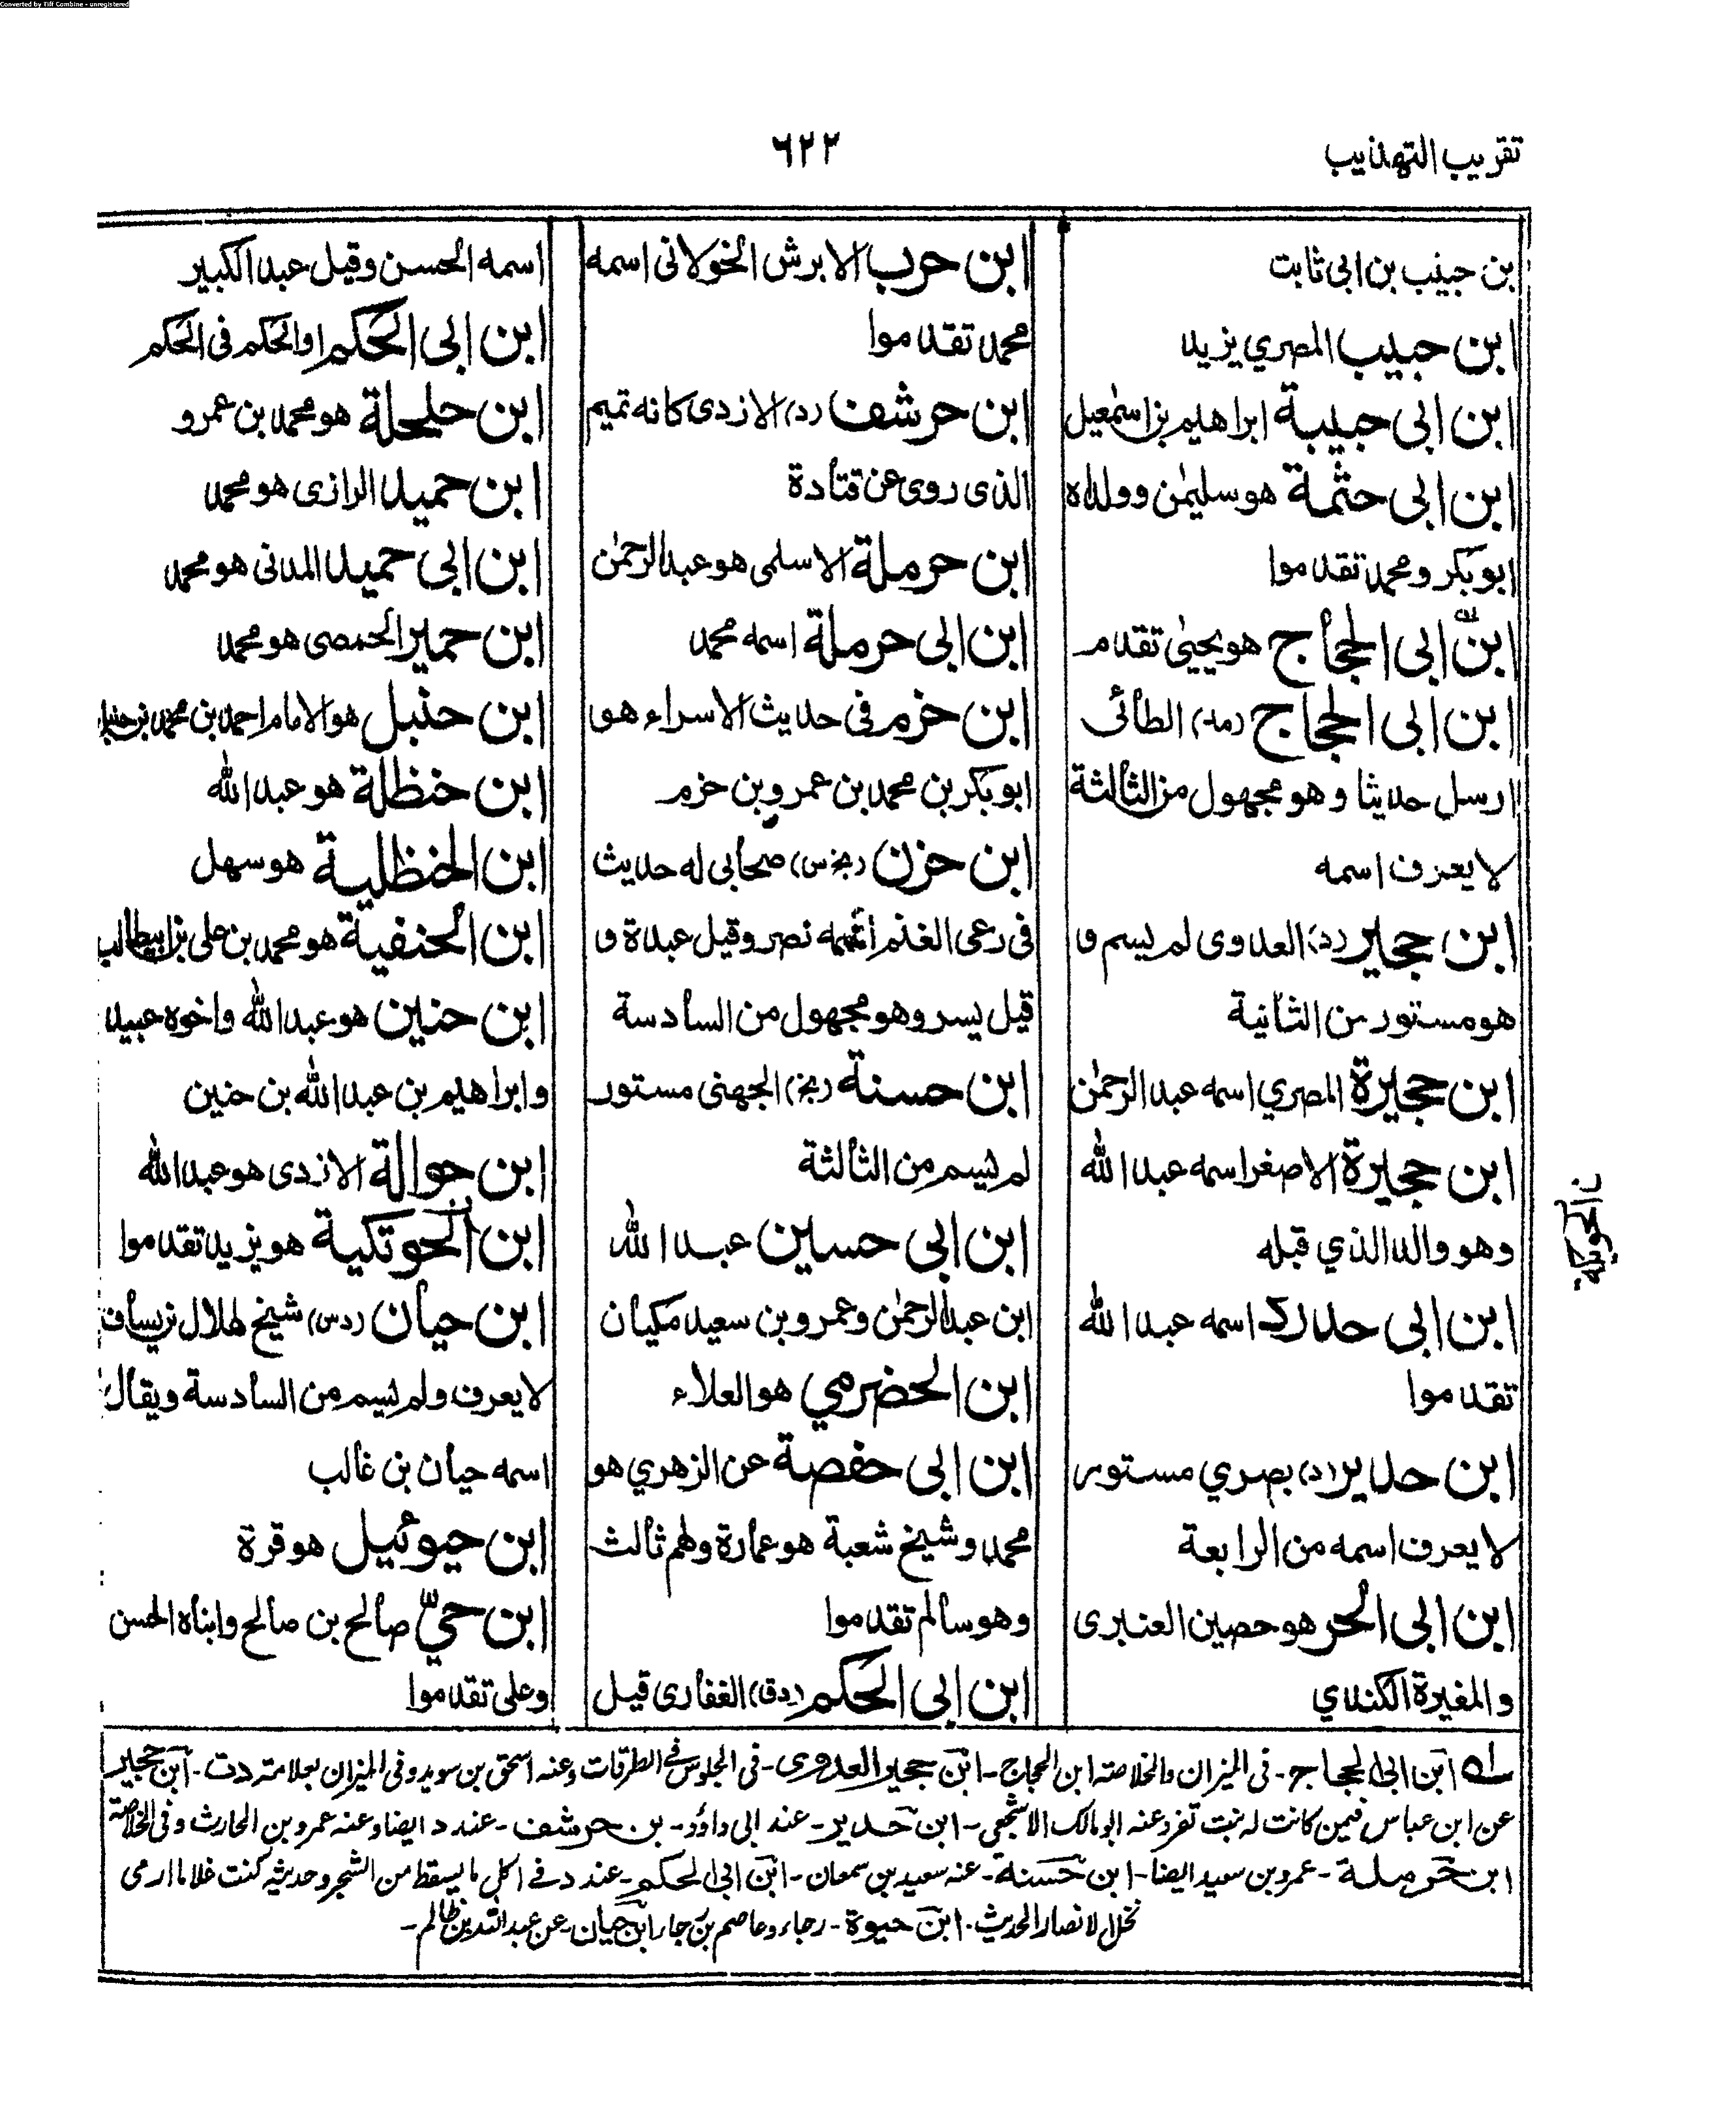 Converted by Tiff Combine - unregistered
تقريب التهذيب
٦٢٢
بن حبيب بن ابى ثابت
ابن حبيب المصري يزيد
ابن ابى حبيبة ابراهيم بن اسمٰعيل
ابن ابى حثمة هو سليمٰن وولداه
ابو بكر ومحمد تقدموا
ابن ابى الحجاج هو يحيىٰ تقدم
ابن ابى الحجاج (مد) الطائى
ارسل حديثا وهو مجهول من الثالثة
لا يعرف اسمه
ابن حجير (د) العدوى لم يسم و
هو مستور من الثانية
ابن حجيرة المصري اسمه عبد الرحمٰن
ابن حجيرة الاصغر اسمه عبد الله
وهو والد الذي قبله
ابن ابى حدرد اسمه عبد الله
تقدموا
ابن حدير (د) بصري مستور
لا يعرف اسمه من الرابعة
ابن ابى الحر هو حصين العنبرى
والمغيرة الكندي
ابن حرب الابرش الخولانى اسمه
محمد تقدموا
ابن حرشف (د) الازدى كانه تميم
الذى روى عن قتادة
ابن حرملة الاسلمى هو عبد الرحمٰن
ابن ابى حرملة اسمه محمد
ابن حزم فى حديث الاسراء هو
ابو بكر بن محمد بن عمرو بن حزم
ابن حزن (بخ س) صحابى له حديث
فى رعى الغنم اسمه نصر وقيل عبدة و
قيل يسر وهو مجهول من السادسة
ابن حسنة (بخ) الجهنى مستور
لم يسم من الثالثة
ابن ابى حسين عبد الله
ابن عبد الرحمٰن وعمرو بن سعيد مكيان
ابن الحضرمي هو العلاء
ابن ابى حفصة عن الزهري هو
محمد وشيخ شعبة هو عمارة ولهم ثالث
وهو سالم تقدموا
ابن ابى الحكم (د ق) الغفارى قيل
اسمه الحسن وقيل عبد الكبير
ابن ابى الحكم او الحكم فى الحكم
ابن حلحلة هو محمد بن عمرو
ابن حميد الرازى هو محمد
ابن ابى حميد المدنى هو محمد
ابن حمير الحمصى هو محمد
ابن حنبل هو الامام احمد بن محمد بن حنبل
ابن حنظلة هو عبد الله
ابن الحنظلية هو سهل
ابن الحنفية هو محمد بن على بن ابيطالب
ابن حنين هو عبد الله واخوه عبيد
وابراهيم بن عبد الله بن حنين
ابن حوالة الازدى هو عبد الله
ابن الحوتكية هو يزيد تقدموا
ابن حيان (د س) شيخ لهلال بن يساف
لا يعرف ولم يسم من السادسة ويقال
اسمه حيان بن غالب
ابن حيوئيل هو قرة
ابن حيّ صالح بن صالح وابناه الحسن
وعلى تقدموا
له ابن ابى الحجاج - فى الميزان والخلاصة ابن الحجاج - ابن حجير العدوى - فى الجلوس فى الطرقات وعنه اسحق بن سويد وفى الميزان بعلامته د ت - ابن حجير
عن ابن عباس فيمن كانت له بنت تفرد عنه ابو مالك الاشجعى - ابن حدير - عند ابى داؤد - بن حرشف - عند د ايضا وعنه عمرو بن الحارث وفى الخلاصة
ابن حرملة - عمرو بن سعيد ايضا - ابن حسنة - عنه سعيد بن سمعان - ابن ابى الحكم - عند د فى اكل ما يسقط من الشجر وحديثه كنت غلاما ارمى
نخل الانصار الحديث - ابن حيوة - رجاء وعاصم بن رجاء ابن حيان - عن عبد الله بن ظالم -